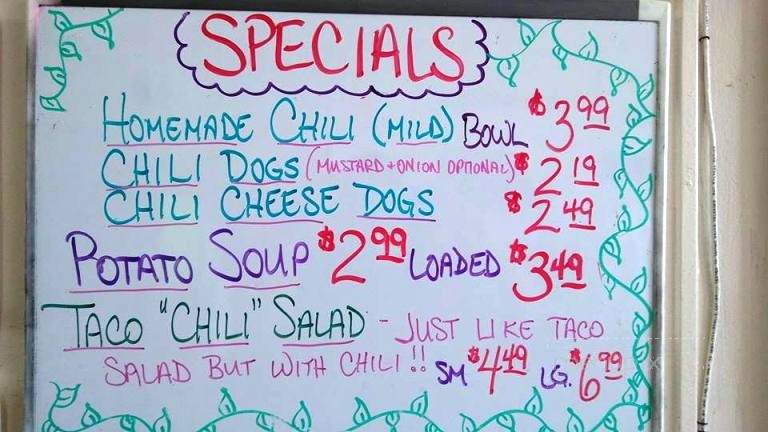 SPECIALS
HOMEMADE CHILI (MILD) BOWL $3.99
CHILI DOGS (MUSTARD + ONION OPTIONAL) $2.19
CHILI CHEESE DOGS $2.49
POTATO SOUP $2.99 LOADED $3.49
TACO "CHILI" SALAD - JUST LIKE TACO
SALAD BUT WITH CHILI!! SM $4.49 LG. $6.99